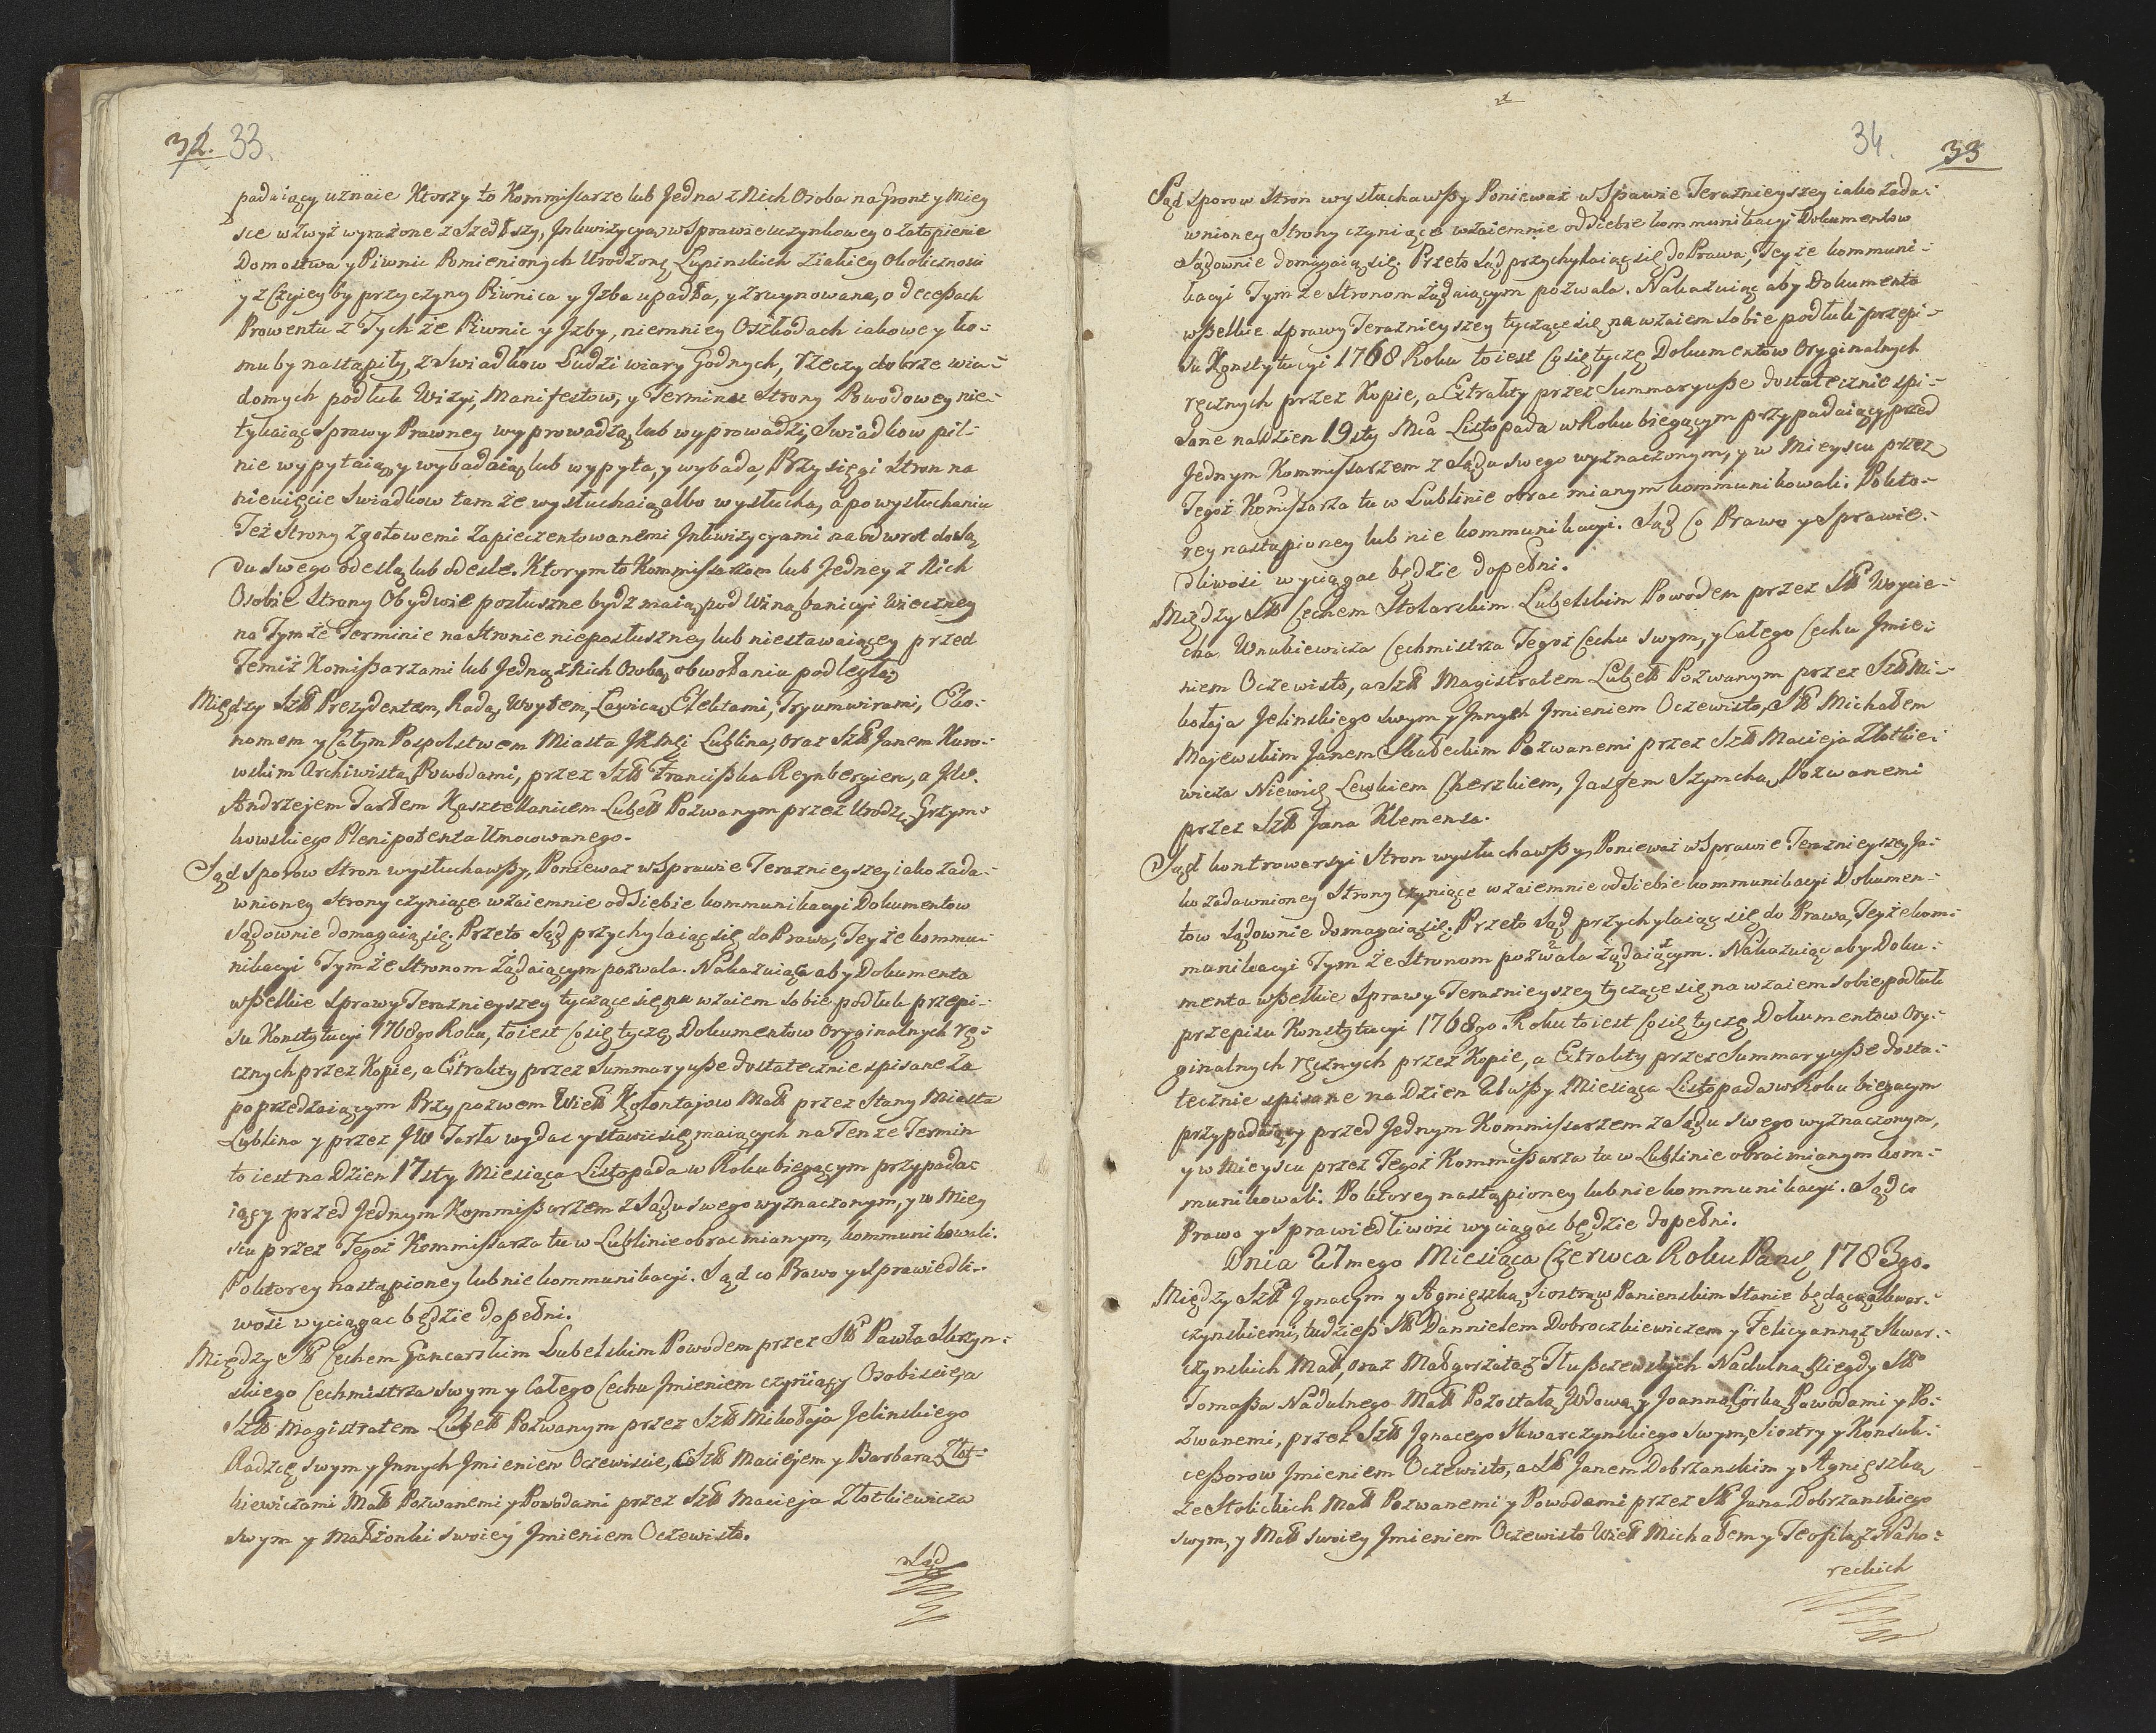 32. 33.
padaiący uznaie Ktorzy to Kommissarze lub Jedna z Nich Osoba na Gront y Miey
sce wzwyż wyrażone z Szedłszy, Jnkwizycyą w Sprawie uczynkowey o Zatopienie
Domostwa y Piwnic Pomienionych Urodzoną Łupinskich z iakiey okolicznosci
y z Czyiey by przyczyny Piwnica y Jzba upadła, y zruynowana, o decessach
Prowentu z Tych że Piwnic y Jzby, niemniey Oszkodach iakowe y ko-
mu by nastąpiły, z Swiadkow Ludzi wiary Godnych, rzeczy dobrze wia-
domych podług Wizyi, Manifestow, y Terminu Strony Powodowey nie-
tykaiąc Sprawy Prawney wyprowadzą lub wyprowadzi, Swiadkow pil-
nie wypytaią y wybadaią lub wypyta, y wybada, Przysięgi Stron na
niewięcie Swiadkow tamże wysłuchaią albo wysłucha, a po wysłuchaniu
Też Strony zgotowemi Zapieczentowanemi Jnkwizycyami na odwrot do Są
du Swego odeslą lub odesle. Ktorym to Kommissarzom lub Jedney z Nich
Osobie Strony Obydwie posłuszne bydz maią, pod Winą banicyi Wieczney
na Tymże Terminie na Stronie nieposłuszney lub niestawaiącey przed
Temiż Komißarzami lub Jedną z Nich Osobą obwołaniu podległą.
Między Szł Prezydentem, Radą, Woytem, Ławicą, Elektami, Tryumwirami, Eko-
nomem y Całym Pospolstwem Miasta JKMci Lublina, oraz Szł Janem Kuro-
wskim Archiwistą Powodami, przez Szł Franciszka Reynbergiera, a JW.
Andrzejem Tarłem Kasztellanicem Lubel Pozwanym przez Urodz. Grzym-
kowskiego Plenipotenta Umocowanego.
Sąd Sporow Stron wysłuchawßy, Ponieważ w Sprawie Teraznieyszey iako Zada-
wnioney Strony czyniące wzaiemnie od Siebie kommunikacyi Dokumentow
Sądownie domagaią się. Przeto Sąd przychylaiąc się do Prawa, Teyże kommu-
nikacyi Tymże Stronom Żądaiącym pozwala. Nakazuiąc aby Dokumenta
wßelkie Sprawy Teraznieyszey tyczące się na wzaiem Sobie podług przepi-
su Konstytucyi 1768go Roku, to iest Co się tyczę Dokumentow Oryginalnych rę-
cznych przez Kopie, a Extrakty przez Summaryuße dostatecznie spisane Za
poprzedzaiącym Przypozwem Wiel Kołontajow Mał przez Stany Miasta
Lublina y przez JW Tarła wydac y stawic się maiących na Tenże Termin
to iest na Dzien 17sty Miesiąca Listopada w Roku biegącym przypada
iący przed Jednym Kommißarzem z Sądu Swego wyznaczonym, y w Miey
scu przez Tegoż Kommissarza tu w Lublinie obrac mianym, kommunikowali.
Po ktorey nastąpioney lub nie kommunikacyi. Sąd co Prawo y Sprawiedli-
wosi wyciągac będzie dopełni.
Między Sł Cechem Gancarskim Lubelskim Powodem przez Sł Pawła Skrzyn-
skiego Cechmistrza swym y Całego Cechu Jmieniem czyniący Osobiscie, a
Szł Magistratem Lubel Pozwanym przez Szł Mikołaja Jelinskiego
Radzcę swym y Jnnych Jmieniem Oczewiscie, a Szł Maciejem y Barbarą Złot-
kiewiczami Mał Pozwanemi y Powodami przez Szł Macieja Złotkiewicza
swym y Małżonki swoiey Jmieniem Oczewisto.
Sąd
34. 33
Sąd Sporow Stron wysłuchawßy Ponieważ w Spawie Teraznieyszey iako Zada-
wnioney Strony czyniące wzaiemnie od Siebie kommunikacyi Dokumentow
Sądownie domagaią się. Przeto Sąd przychylaiąc się do Prawa, Teyże kommuni-
kacyi Tymże Stronom Żądaiącym pozwala. Nakazuiąc aby Dokumenta
wßelkie Sprawy Teraznieyszey tyczące się na wzaiem Sobie podług przepi-
su Konstytucyi 1768 Roku to iest Co się tyczę Dokumentow Oryginalnych
ręcznych przez Kopie, a Extrakty przez Summaryuße dostatecznie spi-
sane na Dzien 19sty Mca Listopada w Roku biegącym przypadaiący przed
Jednym Kommissarzem z Sądu swego wyznaczonym, y w Mieyscu przez
Tegoż Komissarza tu w Lublinie obrac mianym kommunikowali. Po kto-
rey nastąpioney lub nie kommunikacyi. Sąd Co Prawo y Sprawie-
dliwosi wyciągac będzie dopełni.
Między Sł Cechem Stolarskim Lubelskim Powodem przez Sł Woycie-
cha Wnukiewicza Cechmistrza Tegoż Cechu swym, y Całego Cechu Jmie-
niem Oczewisto, a Szł Magistratem Lubel Pozwanym przez Szł Mi-
kołaja Jelinskiego swym y Jnnych Jmieniem Oczewisto, Sł Michałem
Majewskim Janem Skałeckim Pozwanemi przez Szł Macieja Złotkie-
wicza Niewinę Lewkiem Cherzkiem, Jasgem Szymchą Pozwanemi
przez Szł Jana Klemensa.
Sąd kontrowersyi Stron wysłuchawßy, Ponieważ w Sprawie Teraznieyszey Ja-
ko zadawnioney Strony czyniące wzaiemnie od Siebie kommunikacyi Dokumen-
tow Sądownie domagaią się. Przeto Sąd przychylaiąc się do Prawa, Teyże kom-
munikacyi Tymże Stronom pozwala żądaiącym. Nakazuiąc aby Doku-
menta wßelkie Sprawy Teraznieyszey tyczące się na wzaiem sobie podług
przepisu Konstytucyi 1768go. Roku to iest Co się tyczę Dokumentow Ory-
ginalnych ręcznych przez Kopie, a Extrakty przez Summaryuße dosta-
tecznie spisane na Dzien 21wßy Miesiąca Listopada w Roku biegącym
przypadaiący przed Jednym Kommissarzem z Sądu swego wyznaczonym,
y w Mieyscu przez Tegoż Kommißarza tu w Lublinie obrac mianym kom-
munikowali. Po ktorey nastąpioney lub nie kommunikacyi. Sąd co
Prawo y Sprawiedliwosi wyciągac będzie dopełni.
Dnia 27mego Miesiąca Czerwca Roku Pans, 1783go.
Między Szł Jgnacym y Agnieszką Siostrą w Panienskim Stanie będącą Skwar-
czynskiemi, tudzieß Sł Dannielem Dobroczkiewiczem y Felicyanną z Skwar-
czynskich Mał, oraz Małgorzatą z Tłuszczewskich Nadulną Niegdy Sł
Tomaßa Nadulnego Mał Pozostałą Wdową y Joanną Corką Powodami y Po-
zwanemi, przez Szł Jgnacego Skwarczynskiego swym, Siostry y Konsuk-
ceßorow Jmieniem Oczewisto, a Sł Janem Dobrzanskim y Agnieszką
ze Stolickich Mał Pozwanemi y Powodami przez Sł Jana Dobrzanskiego
swym, y Mał swoiey Jmieniem Oczewisto Wiel Michałem y Teofilą z Nako-
reckich